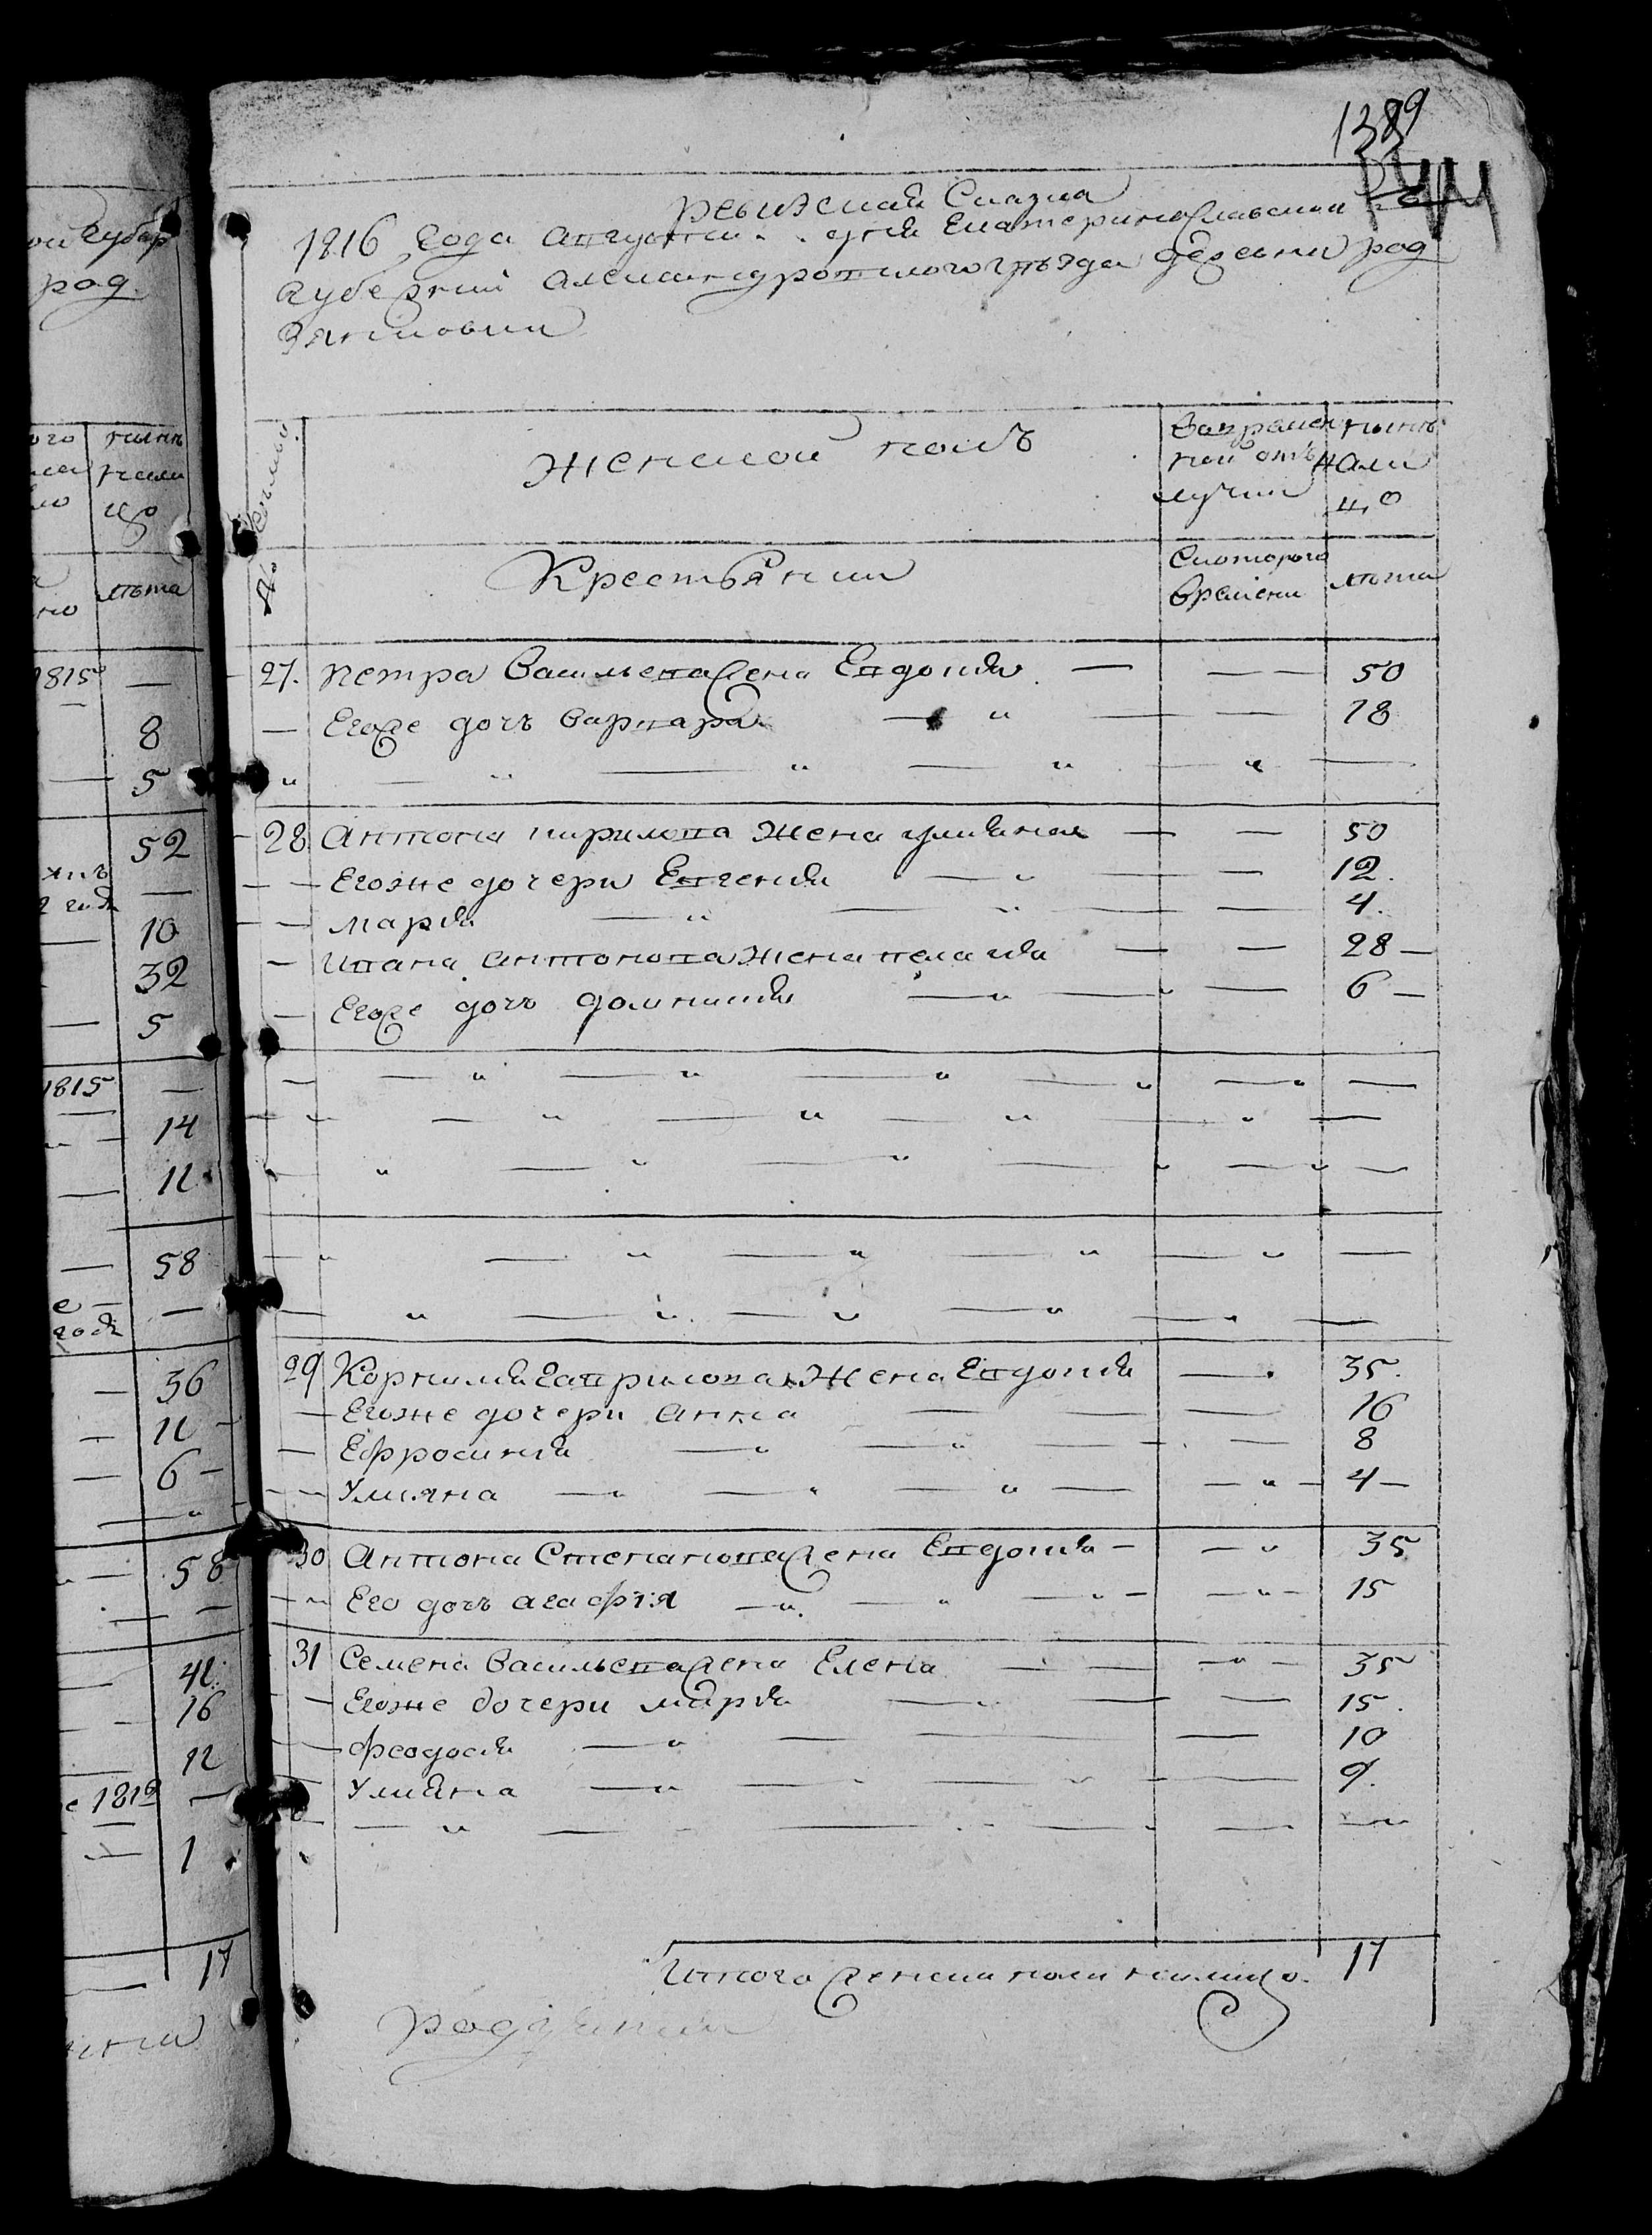 1389
ревижская Сказка
1816 года августа . . дня Екатеринославской
губернии александровского уѣзда деревни род
зянловки
№ Семьи
женской полъ
Во времен
ной отъ
лучки
нынѣ
нали
цо
Крестьянки
Скоторого
времени
лѣта
27. петра Васильева жена Евдокия — — — 50
— Егоже дочь варвара — " — — 18
28 антона кирилова жена улияная — — 50
— — Егоже дочери Евгения — " — 12.
— мария — " — " — — 4.
— ивана антонова жена пелагия — — 28 —
— Егоже дочь домникия — " — " — 6 —
29 Корнилия гаврилова жена Евдокия — 35.
— Егоже дочери анна — — — 16
— Ефросиния — " — " — — 8
— Улияна — " — " — " — — " — 4 —
30 антона Степанова жена Евдокия — — " 35
— " Его дочь агафія — " — " — " — — " — 15
31 Семена васильева жена Елена — — — " — 35
— Егоже дочери мария — " — — 15.
— феодосия — " — — — 10
— Улияна — " — " — " — — 9.
Итого женска пола налицо. 17
ой губер
род.
ого
нынѣ
нали
цо
лѣта
но
1815 —
8
— 5
52
2 года —
— 10
32
— 5
1815 —
14
— 11
— 58
годѣ —
— 36
— 11 —
— 6 —
58
42
16
12
1812 —
1
— 17